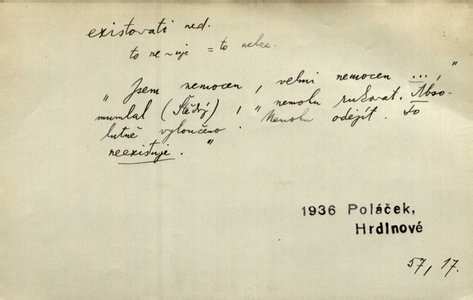 existovati ned.
to ne~uje = to nelze.
„Jsem nemocen, velmi nemocen ...,"
mumlal (Štědrý), „nemohu rukovat. Abso-
lutně vyloučeno. Nemohu odejít. To
neexistuje."
1936 Poláček,
Hrdinové
57, 17.